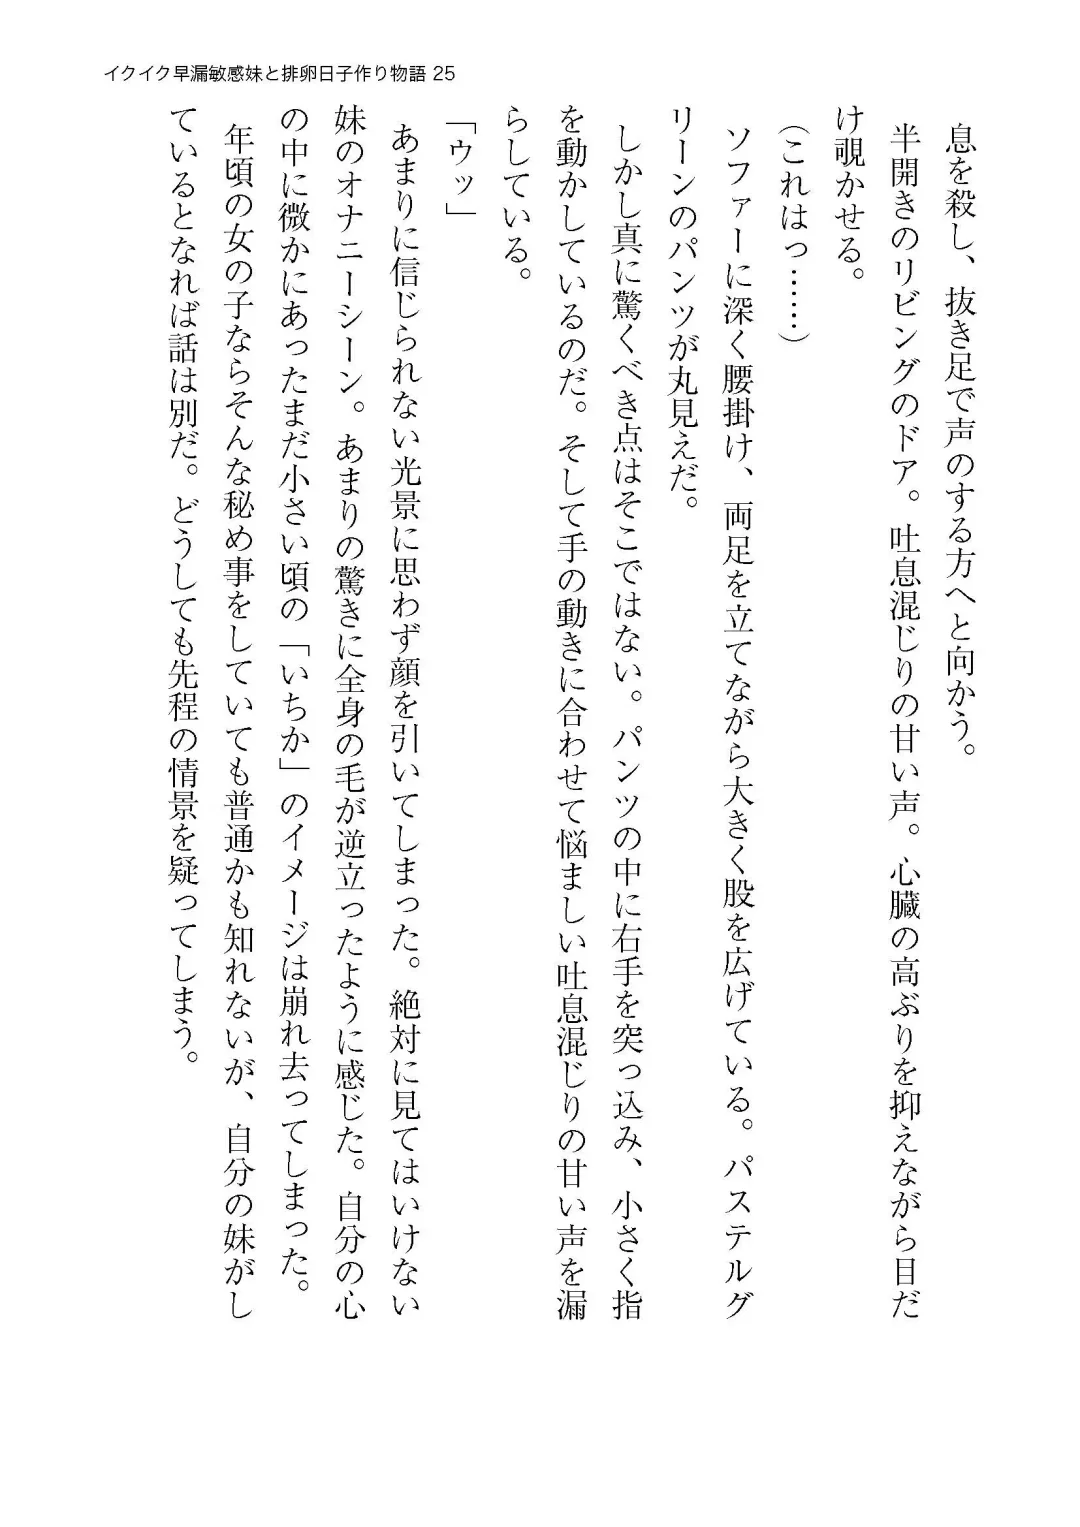 イクイク早漏敏感妹と排卵日子作り物語 25
息を殺し、抜き足で声のする方へと向かう。
半開きのリビングのドア。吐息混じりの甘い声。心臓の高ぶりを抑えながら目だ
け覗かせる。
（これはっ……）
ソファーに深く腰掛け、両足を立てながら大きく股を広げている。パステルグ
リーンのパンツが丸見えだ。
しかし真に驚くべき点はそこではない。パンツの中に右手を突っ込み、小さく指
を動かしているのだ。そして手の動きに合わせて悩ましい吐息混じりの甘い声を漏
らしている。
「ウッ」
あまりに信じられない光景に思わず顔を引いてしまった。絶対に見てはいけない
妹のオナニーシーン。あまりの驚きに全身の毛が逆立ったように感じた。自分の心
の中に微かにあったまだ小さい頃の「いちか」のイメージは崩れ去ってしまった。
年頃の女の子ならそんな秘め事をしていても普通かも知れないが、自分の妹がし
ているとなれば話は別だ。どうしても先程の情景を疑ってしまう。